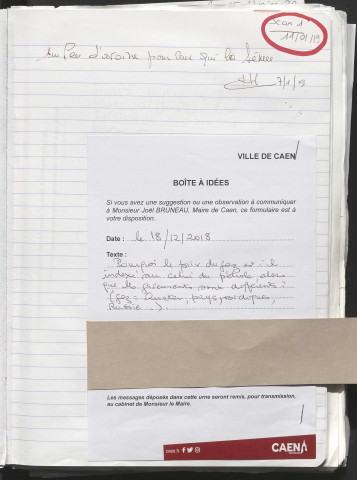 scan 1
11/01/19
Un Peu d'avoine pour ceux qui la sème
7/1/19
VILLE DE CAEN
BOÎTE À IDÉES
Si vous avez une suggestion ou une observation à communiquer
à Monsieur Joël BRUNEAU, Maire de Caen, ce formulaire est à
votre disposition.
Date : le 18/12/2018
Texte :
Pourquoi le prix du gaz est-il
indexé sur celui du pétrole alors
que les gisements sont différents :
(gaz = pays nordiques,
Russie...).
Les messages déposés dans cette urne seront remis, pour transmission,
au cabinet de Monsieur le Maire.
caen.fr
CAEN